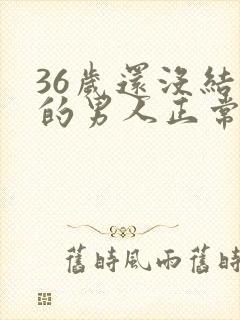 36歲還沒結
的男人正常
舊時風雨舊時